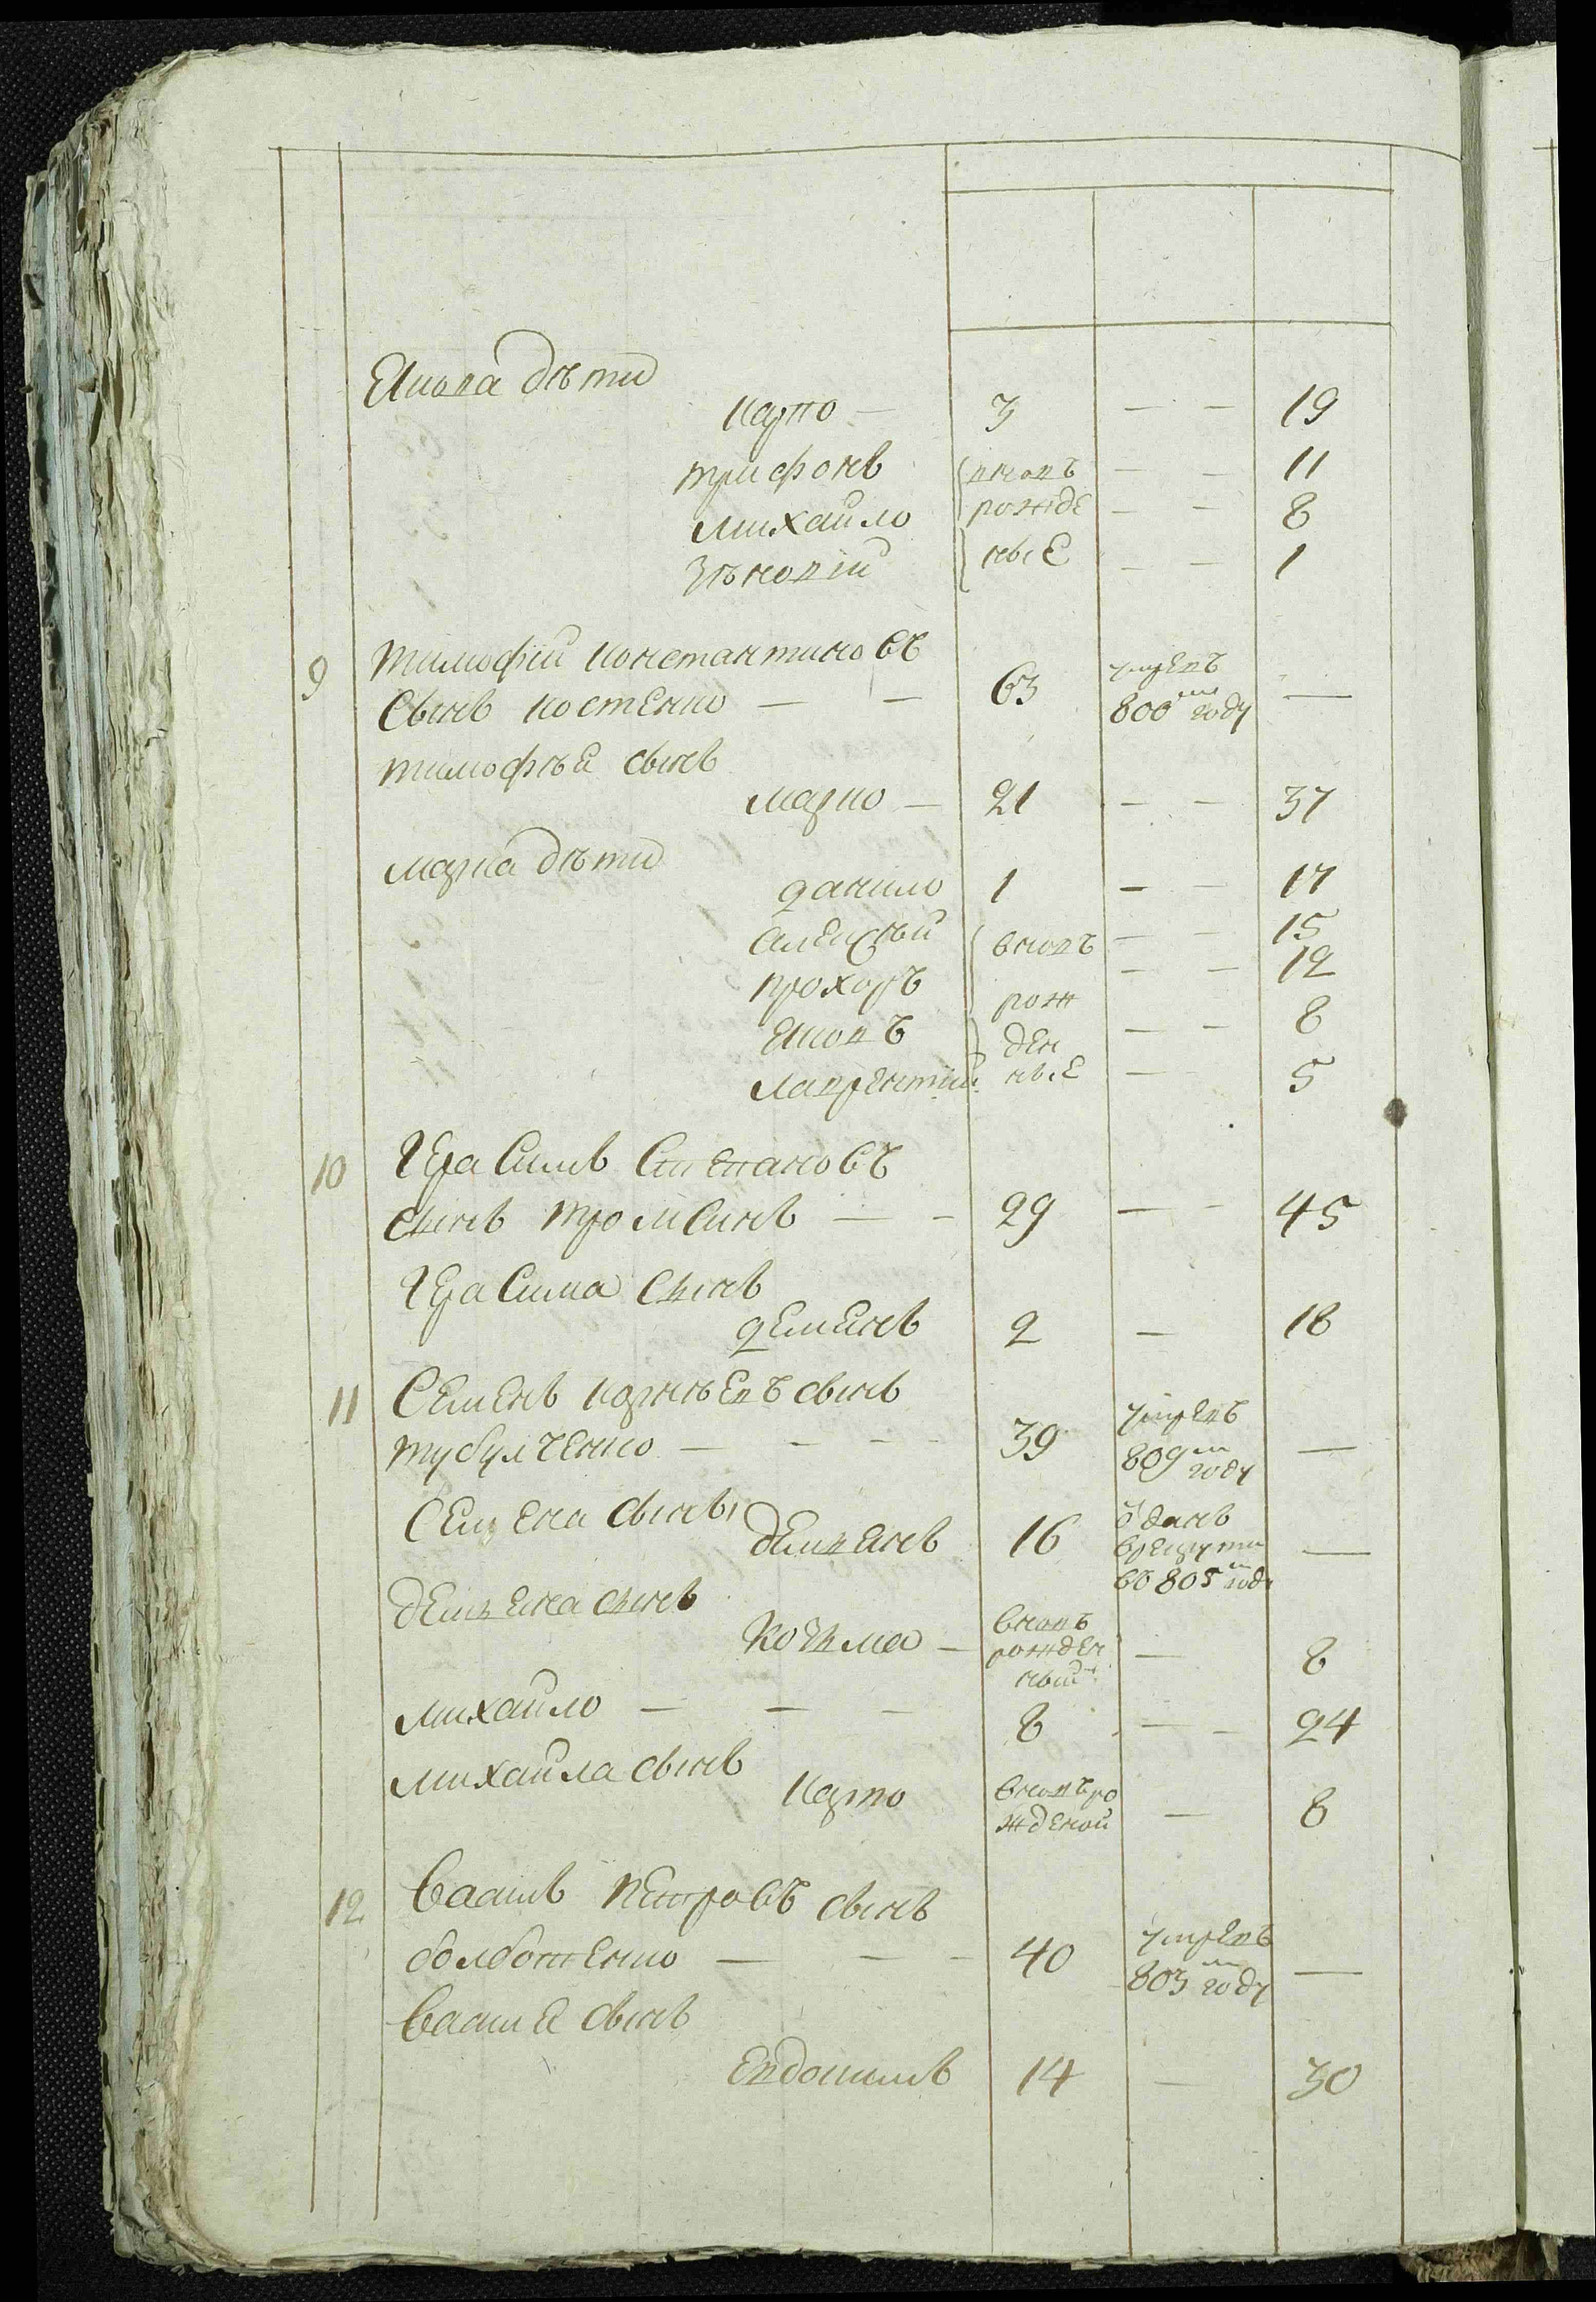 Якова дѣти
Карпо — 3 — — 19
трифонъ вновь — — 11
михайло рожде — — 8
Зѣновій ные — — 1
9 тимофій константиновъ
сынъ костенко — — 63 умревъ 800м году —
тимофѣя сынъ
марко — 21 — — 37
марка дѣти
данило 1 — — 17
алексѣй вновь — — 15
прохоръ рож — — 12
яковъ ден — — 8
лаврентій ные — 5
10 Герасимъ Степановъ
сынъ — — 29 — — 45
Герасима сынъ
демянъ 2 — 18
11 Семенъ корнѣевъ сынъ
— — — — 39 умревъ 809м году —
Семена сынъ
демянъ 16 одданъ врекруты въ 805м году —
демяна сынъ
Козма — вновь рожденный — 8
михайло — — — 8 — — 24
михайла сынъ
Карпо вновьро жденой — 8
12 петровъ сынъ
болботенко — — — 40 умревъ 803м году —
сынъ
Евдокимъ 14 — 30